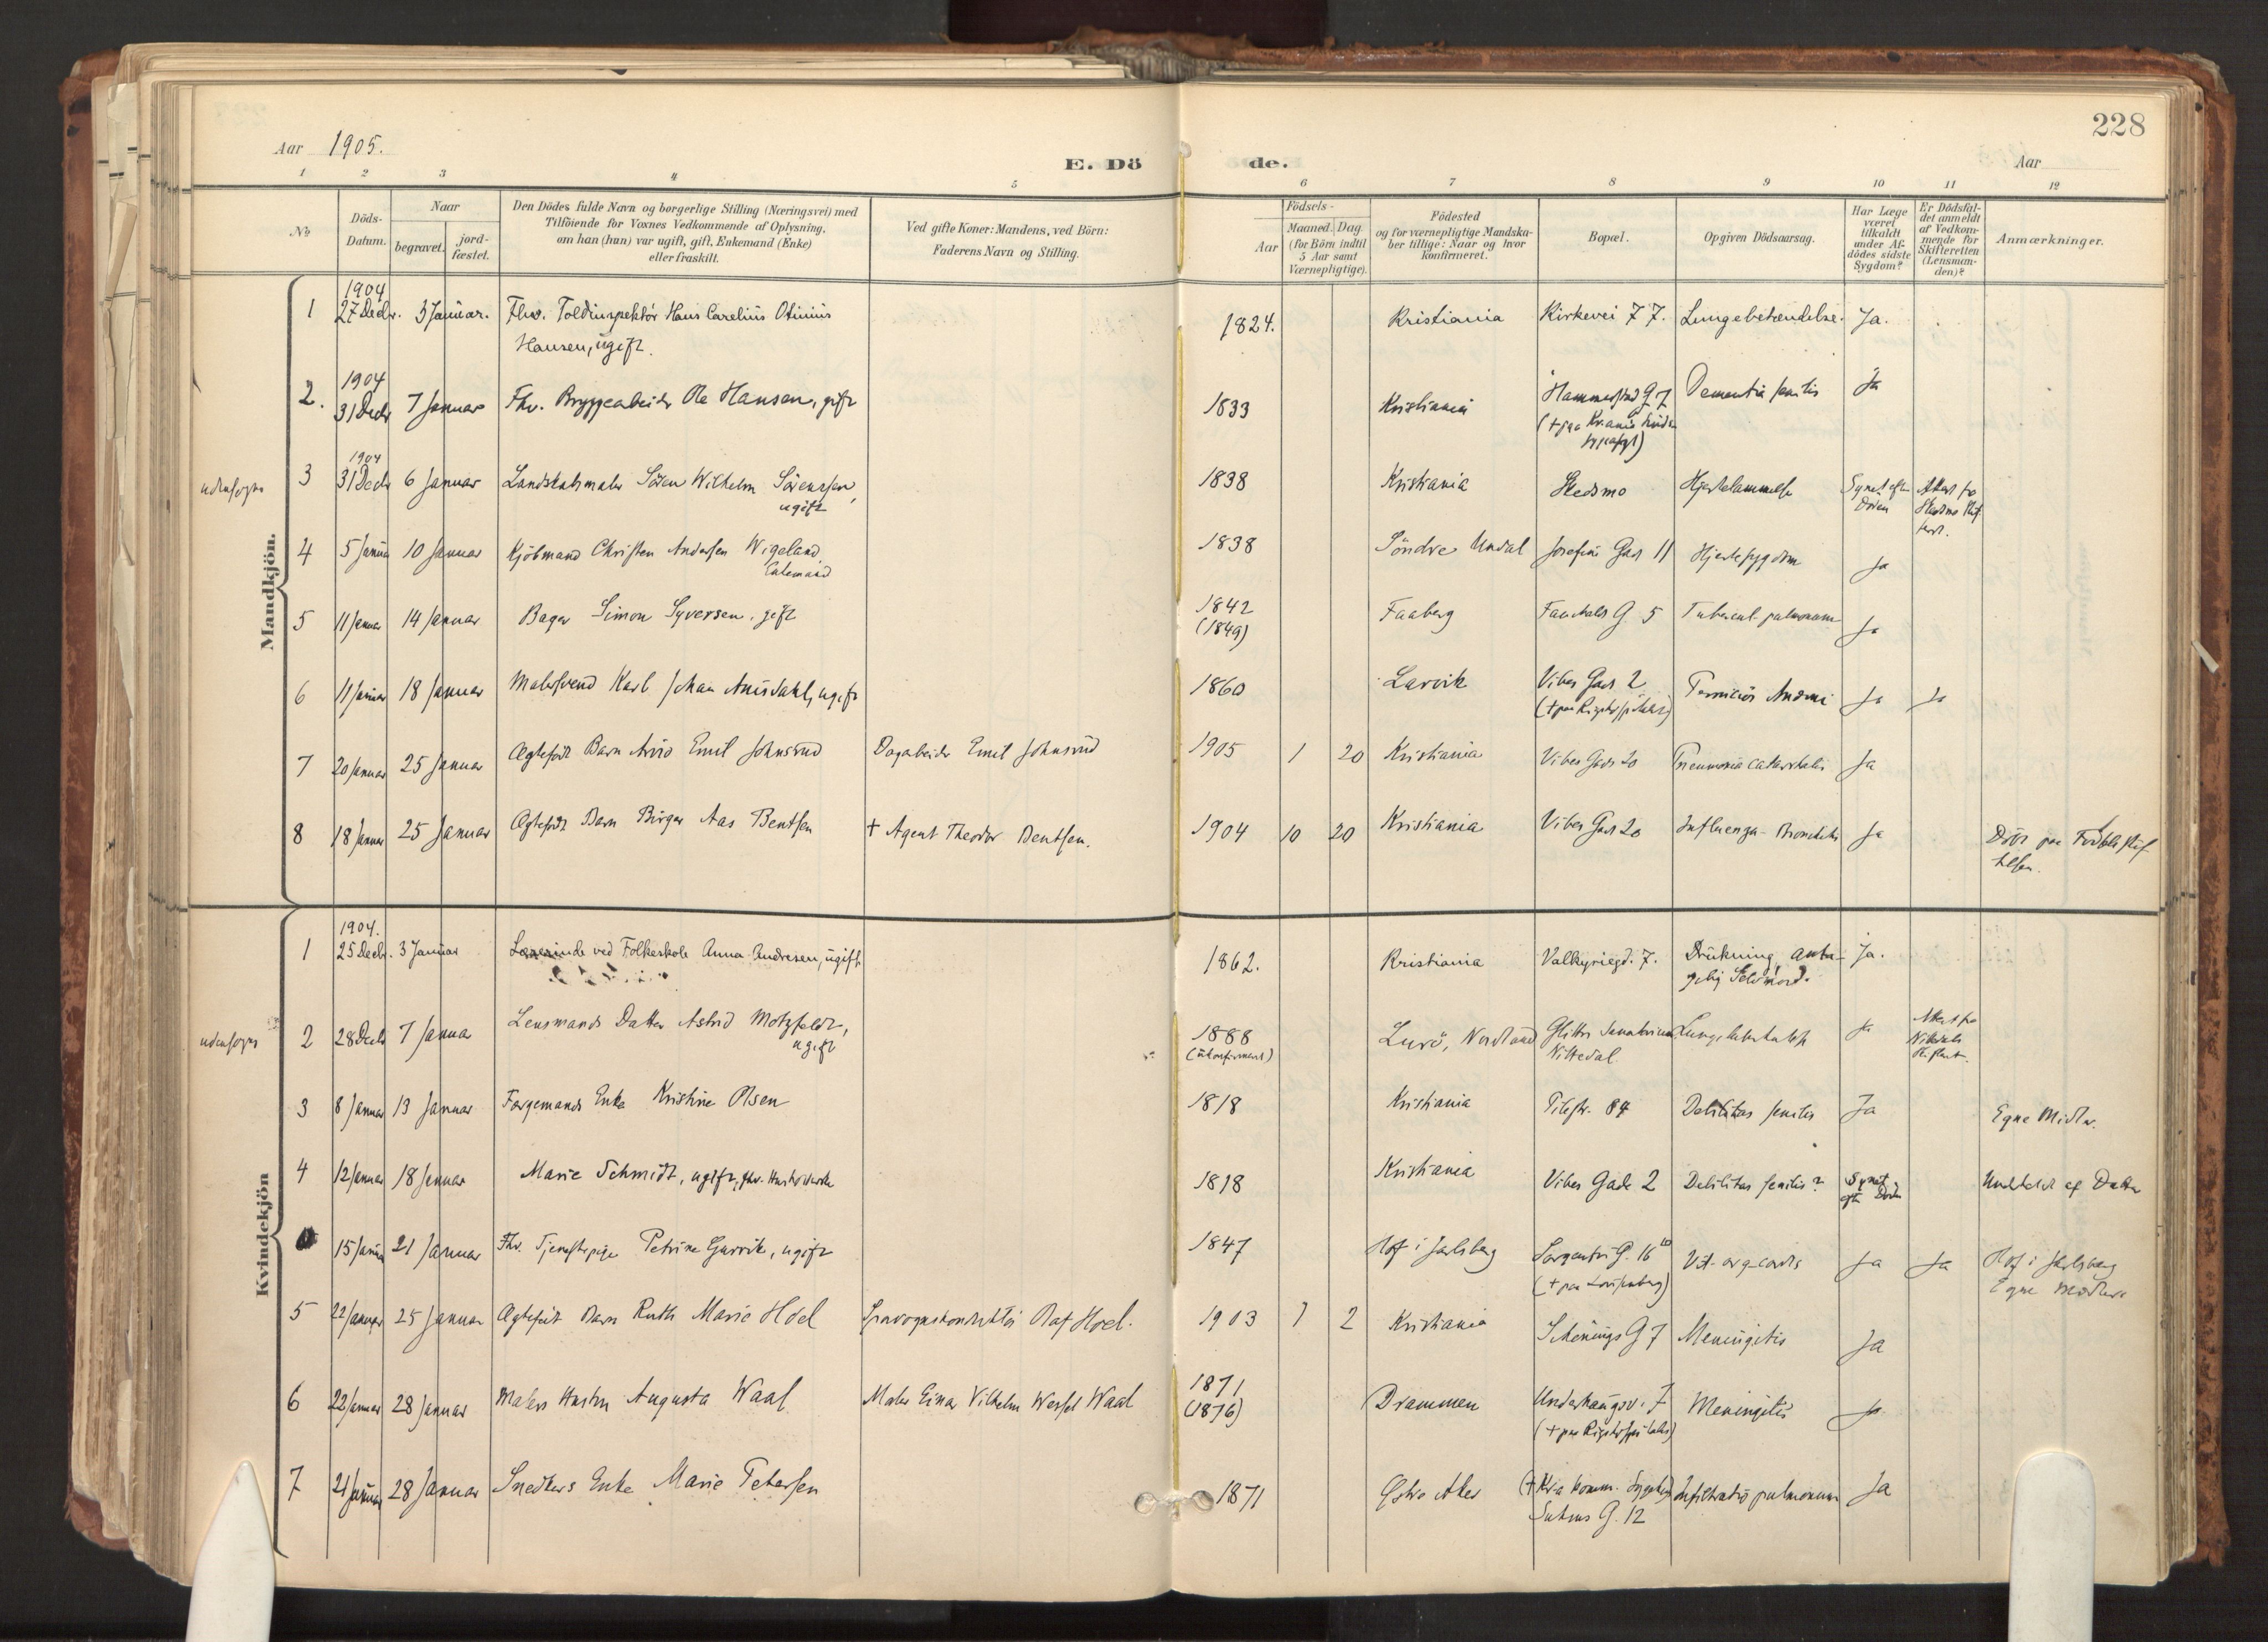 228
Aar 1905.
E. Dö de.
Aar
1 2 3 4 5 6 7 8 9 10 11 12
No
Döds-Datum.
Naar
begravet. jord-fæstet.
Den Dödes fulde Navn og borgerlige Stilling (Næringsvei) med
Tilföiende for Voxnes Vedkommende af Oplysning,
om han (hun) var ugift, gift, Enkemand (Enke)
eller fraskilt.
Ved gifte Koner: Mandens, ved Börn:
Faderens Navn og Stilling.
Födsels-
Aar
Maaned. Dag.
(for Börn indtil
5 Aar samt
Værnepligtige).
Födested
og for værnepligtige Mandska-
ber tillige: Naar og hvor
Konfirmeret.
Bopæl.
Opgiven Dödsaarsag.
Har Læge
været
tilkaldt
under Af-
dödes sidste
Sygdom?
Er Dödsfal-
det anmeldt
af Vedkom-
mende for
Skifteretten
(Lensman-
den)?
Anmærkninger.
Mandkjön.
1904
1 27 Decbr. 3 Januar. Fhv. Toldinspektör Hans Carelius Otinius 1824. Kristiania Kirkevei 77. Lungebetændelse. Ja.
Hansen, ugift.
1904
2. 31 Decbr 7 Januar Fhv. Bryggearbeider Ole Hansen, gift 1833 Kristiania Hammerstad G 7 Dementia senilis Ja
1904
udensogns 3 31 Decbr 6 Januar Landskabsmaler Sören Wilhelm Sörensen, 1838 Kristiania Skedsmo Hjertelammelse Synet efter Attest fra
ugift Döden Skedsmo
4 5 Januar 10 Januar Kjöbmand Christen Andersen Wigeland 1838 Söndre Undal Josefine Gade 11 Hjertesygdom Ja
Enkemand
5 11 Januar 14 Januar Bager Simon Syversen, gift 1842 Faaberg Fauchalds G 5 Tubercul. pulmonum Ja
(1849)
6 11 Januar 18 Januar Malersvend Karl Johan ugift 1860 Larvik Vibes Gade 2 Perniciös Anæmi Ja Ja
(+ paa Rigshospitalet)
7 20 Januar 25 Januar Ægtefödt Barn Arvid Emil Johnsrud Dagarbeider Emil Johnsrud 1905 1 20 Kristiania Vibes Gade 20 Pneumonia catarrhalis Ja
8 18 Januar 25 Januar Ægtefödt Barn Birger Aas Bentsen + Agent Theodor Bentsen. 1904 10 20 Kristiania Vibes Gade 20 Influenza-Bronchitis Ja Död paa
Kvindekjön
1904.
1 25 Decbr. 3 Januar Lærerinde ved Folkeskole Anna Andresen, ugift 1862. Kristiania Valkyriegd. 7. Drukning, anta- Ja.
gelig Selvmord.
udensogns 2 28 Decbr 7 Januar Lensmands Datter Astrid Motzfeldt, 1888 Lurö, Nordland Glittre Sanatorium Lungetuberkulose Ja Attest fra
ugift (ukonfirmeret) Nittedal Nittedals
3 8 Januar 13 Januar Færgemands Enke Kristine Olsen 1818 Kristiania Pilestr. 84 Debilitas senilis Ja Egne Midler.
4 12 Januar 18 Januar Marie Schmidt, ugift, 1818 Kristiania Vibes Gade 2 Debilitas senilis? Synet Underholdt af Datter
efter Döden
15 Januar 21 Januar Fhv. Tjenestepige Petrine Gurvik, ugift 1847 Hof i Jarlsberg Sorgenfri G. 16 Vit. org. cordis Ja Ja Hof i Jarlsberg
Egne Midler
5 22 Januar 25 Januar Ægtefödt Barn Ruth Marie Hoel Sporvognskonduktör Olaf Hoel. 1903 7 2 Kristiania Schönings G 7 Meningitis Ja
6 22 Januar 28 Januar Malers Hustru Augusta Waal Maler Einar Vilhelm Wessel Waal 1871 Drammen Underhaugsv. 7 Meningitis Ja
(1876) (+ paa Rigshospitalet)
7 21 Januar 28 Januar Snedkers Enke Marie Petersen 1871 Östre Aker (+ Kr.a komm. Sygehus) Infiltratio pulmonum Ja
G. 12